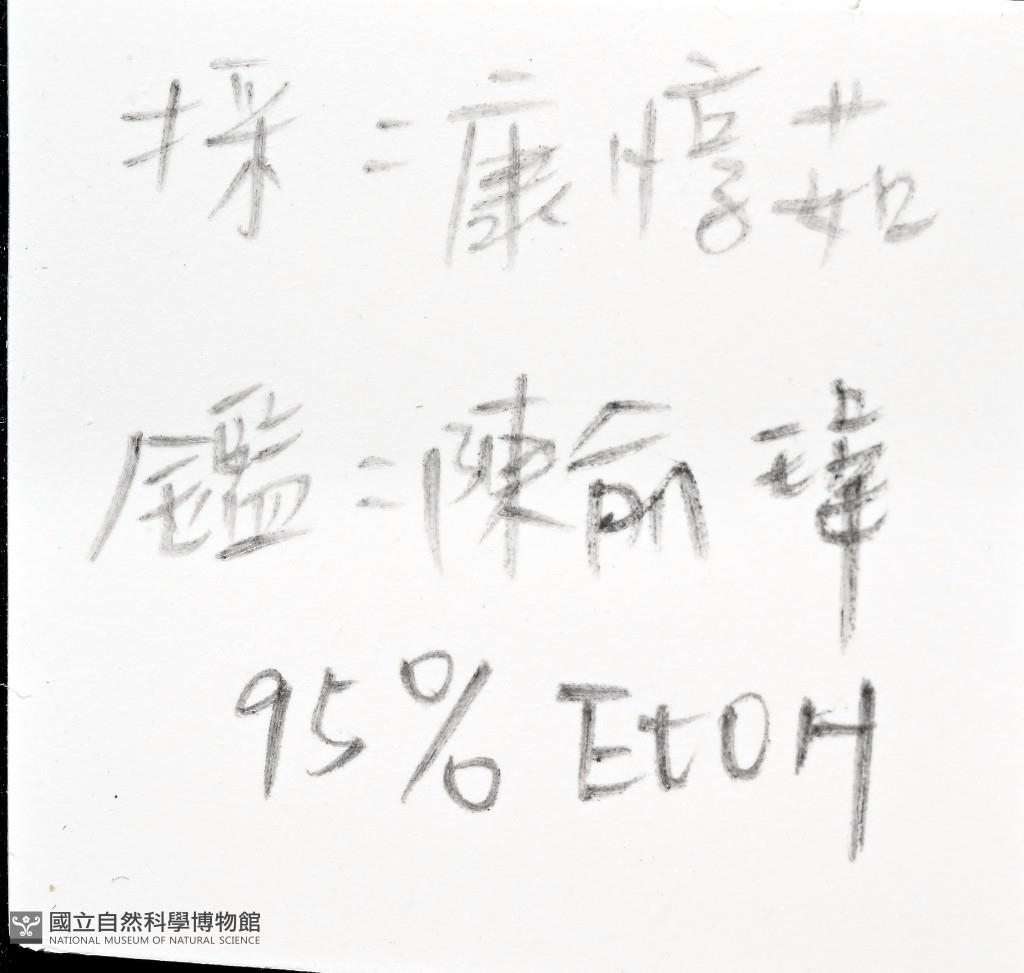 採：康惇茹
鑑：陳俞瑋
95% EtOH
國立自然科學博物館
NATIONAL MUSEUM OF NATURAL SCIENCE